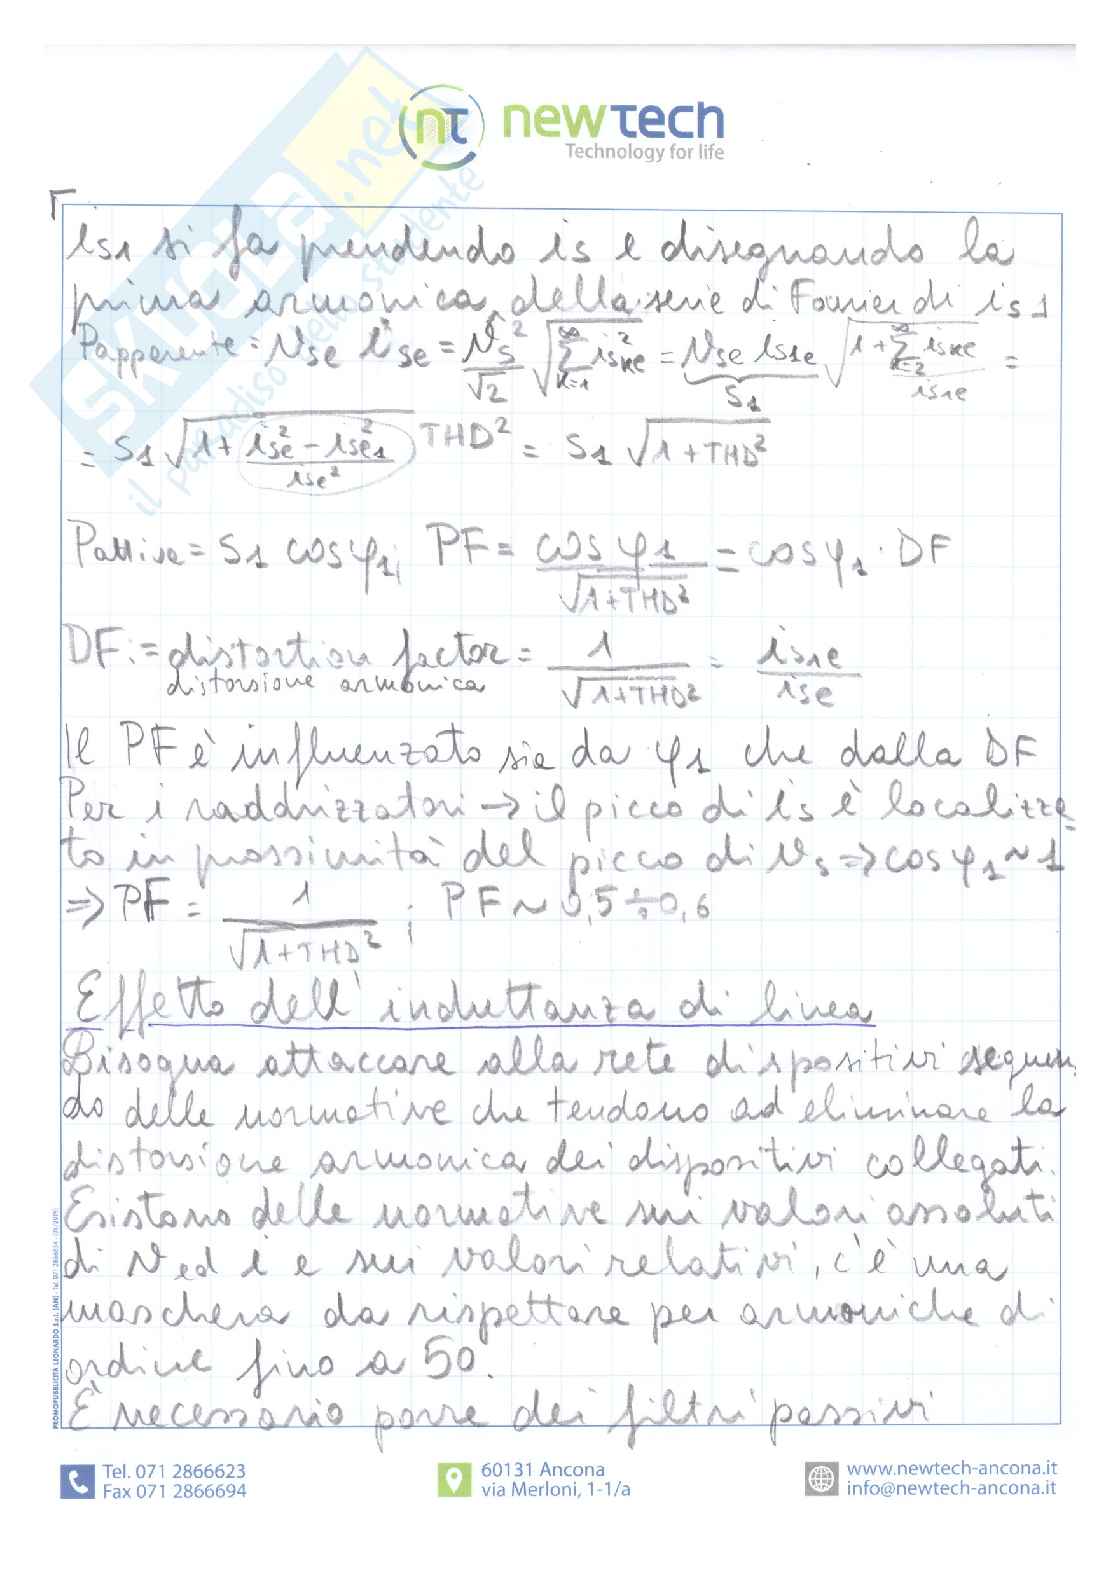 nt newtech
Technology for life
SKUOLA.net
il paradiso dello studente
is1 si fa prendendo is e disegnando la
prima armonica della serie di Fourier di is1
Papparente = Vse ise = Vs^2/√2 √(∑_{k=1}^{∞} iske^2) = Vse is1e √(1+∑_{k=2}^{∞} iske/is1e) =
S1
= S1 √(1+(ise^2 - ise1^2)/ise^2) THD^2 = S1 √(1+THD^2)
Pattiva = S1 cosφ1; PF = cosφ1/√(1+THD^2) = cosφ1 · DF
DF := distortion factor = 1/√(1+THD^2) = is1e/ise
distorsione armonica
Il PF è influenzato sia da φ1 che dalla DF
Per i raddrizzatori → il picco di is è localizza=
to in prossimità del picco di Vs ⇒ cosφ1 ~ 1
⇒ PF = 1/√(1+THD^2) ; PF ~ 0,5÷0,6
Effetto dell'induttanza di linea
Bisogna attaccare alla rete dispositivi seguen
do delle normative che tendono ad eliminare la
distorsione armonica dei dispositivi collegati.
Esistono delle normative sui valori assoluti
di V ed i e sui valori relativi, c'è una
maschera da rispettare per armoniche di
ordine fino a 50.
È necessario porre dei filtri passivi
Tel. 071 2866623
Fax 071 2866694
60131 Ancona
via Merloni, 1-1/a
www.newtech-ancona.it
info@newtech-ancona.it